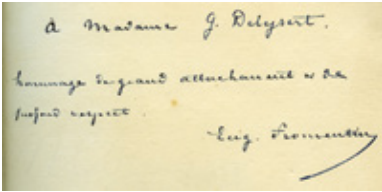 à Madame G. Delysert.
hommage de grand attachement et de
profond respect.
Eug. Fromentin